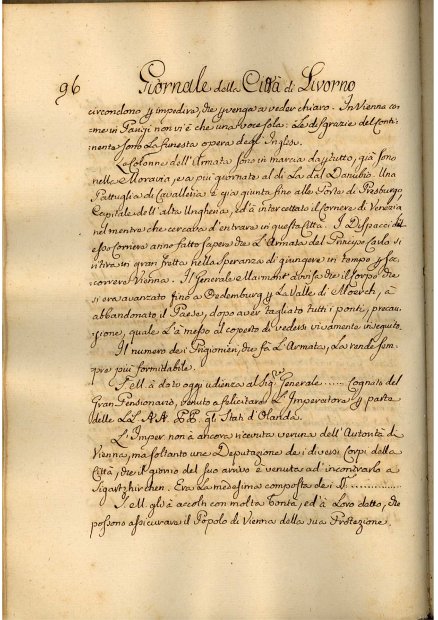 96 Giornale della Città di Livorno
circondono p impedire, che p venga a veder chiaro. In Vienna co-
me in Parigi non vi è che una voce sola: Le disgrazie del Conti-
nente sono la funesta opera degl' Inglesi.
Le Colonne dell'Armata sono in marcia da p tutto, già sono
nella Moravia, e a più giornate al di là dal Danubio. Una
Pattuglia di Cavalleria è già giunta fino alle Porte di Presburgo
Capitale dell'alta Ungheria, ed à intercettato il Corriere di Venezia
nel mentre che cercava d'entrare in questa Città. I Dispacci di
esso Corriere anno fatto sapere che L'Armata del Principe Carlo si
ritira in gran fretta nella speranza di giungere in tempo p soc-
correre Vienna. Il Generale Marmont avvisa che il Corpo che
si era avanzato fino a Oedemburg p La Valle di Moerch, à
abbandonato il Paese, dopo aver tagliato tutti i ponti, precau-
zione, quale L'à messo al coperto di vedersi vivamente inseguito.
Il numero dei Prigionieri, che fà L'Armata, La rende sem-
pre più formidabile.
S. e M. à dato oggi udienza al Sig.re Generale ...... Cognato del
Gran Pensionario, venuto a felicitare L'Imperatore p parte
delle LL. AA. PP. gli Stati d'Olanda.
L'Imper. non à ancora ricevuta veruna dell'Autorità di
Vienna, ma soltanto una Deputazione dei diversi Corpi della
Città, che il giorno del suo arrivo è venuta ad incontrarlo a
Sigartzkirchen. Era la medesima composta dei ............
S. e M. gli à accolti con molta bontà, ed à Loro detto, che
possono assicurare il Popolo di Vienna della sua Protezione.